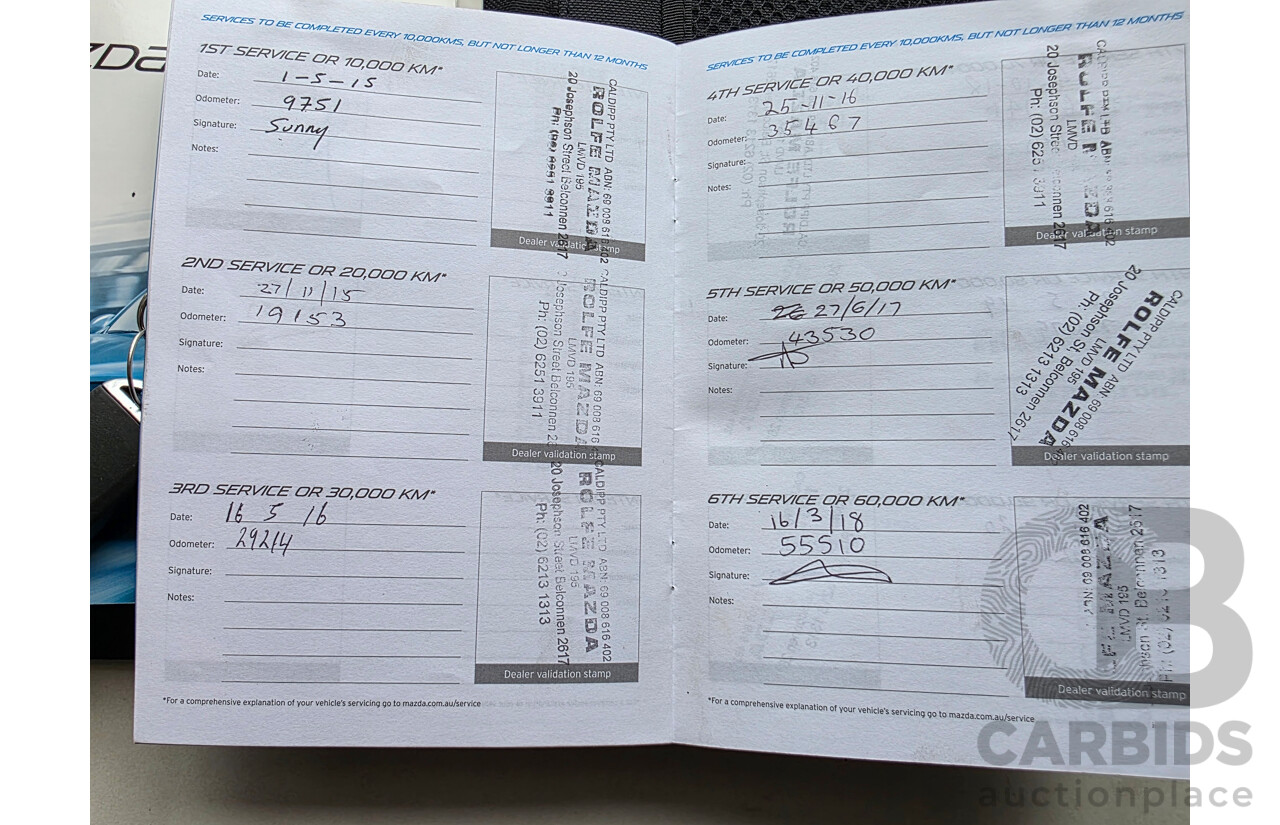 SERVICES TO BE COMPLETED EVERY 10,000KMS, BUT NOT LONGER THAN 12 MONTHS
1ST SERVICE OR 10,000 KM*
Date: 1-5-15
Odometer: 9751
Signature: Sunny
Notes:
CALDIPP PTY LTD ABN: 69 008 616 402
ROLFE MAZDA
LMVD 195
20 Josephson Street Belconnen 2617
Ph: (02) 6251 3911
Dealer validation stamp
2ND SERVICE OR 20,000 KM*
Date: 27/11/15
Odometer: 19153
Signature:
Notes:
CALDIPP PTY LTD ABN: 69 008 616
ROLFE MAZDA
LMVD 195
Josephson Street Belconnen
Ph: (02) 6251 3911
Dealer validation stamp
3RD SERVICE OR 30,000 KM*
Date: 16 5 16
Odometer: 29214
Signature:
Notes:
CALDIPP PTY LTD ABN: 69 008 616 402
ROLFE MAZDA
LMVD 195
20 Josephson Street Belconnen 2617
Ph: (02) 6213 1313
Dealer validation stamp
*For a comprehensive explanation of your vehicle's servicing go to mazda.com.au/service
SERVICES TO BE COMPLETED EVERY 10,000KMS, BUT NOT LONGER THAN 12 MONTHS
4TH SERVICE OR 40,000 KM*
Date: 25-11-16
Odometer: 35467
Signature:
Notes:
LMVD
20 Josephson
Dealer validation stamp
5TH SERVICE OR 50,000 KM*
Date: 27/6/17
Odometer: 43530
Signature:
Notes:
CALDIPP PTY LTD ABN: 69 008 616
ROLFE MAZDA
LMVD 195
20 Josephson St, Belconnen 2617
Ph: (02) 6213 1313
Dealer validation stamp
6TH SERVICE OR 60,000 KM*
Date: 16/3/18
Odometer: 55510
Signature:
Notes:
LMVD 195
St. Belconnen 2617
Dealer validation stamp
*For a comprehensive explanation of your vehicle's servicing go to mazda.com.au/service
CARBIDS
auctionplace